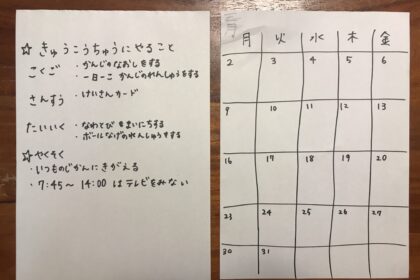 ☆きゅうこうちゅうにやること
こくご ・かんじのなおしをする
・一日一こ かんじのれんしゅうをする
さんすう ・けいさんカード
たいいく ・なわとびをまいにちする
・ボールなげのれんしゅうをする
☆やくそく
・いつものじかんにきがえる
・7:45〜14:00はテレビをみない
月 火 水 木 金
2 3 4 5 6
9 10 11 12 13
16 17 18 19 20
23 24 25 26 27
30 31